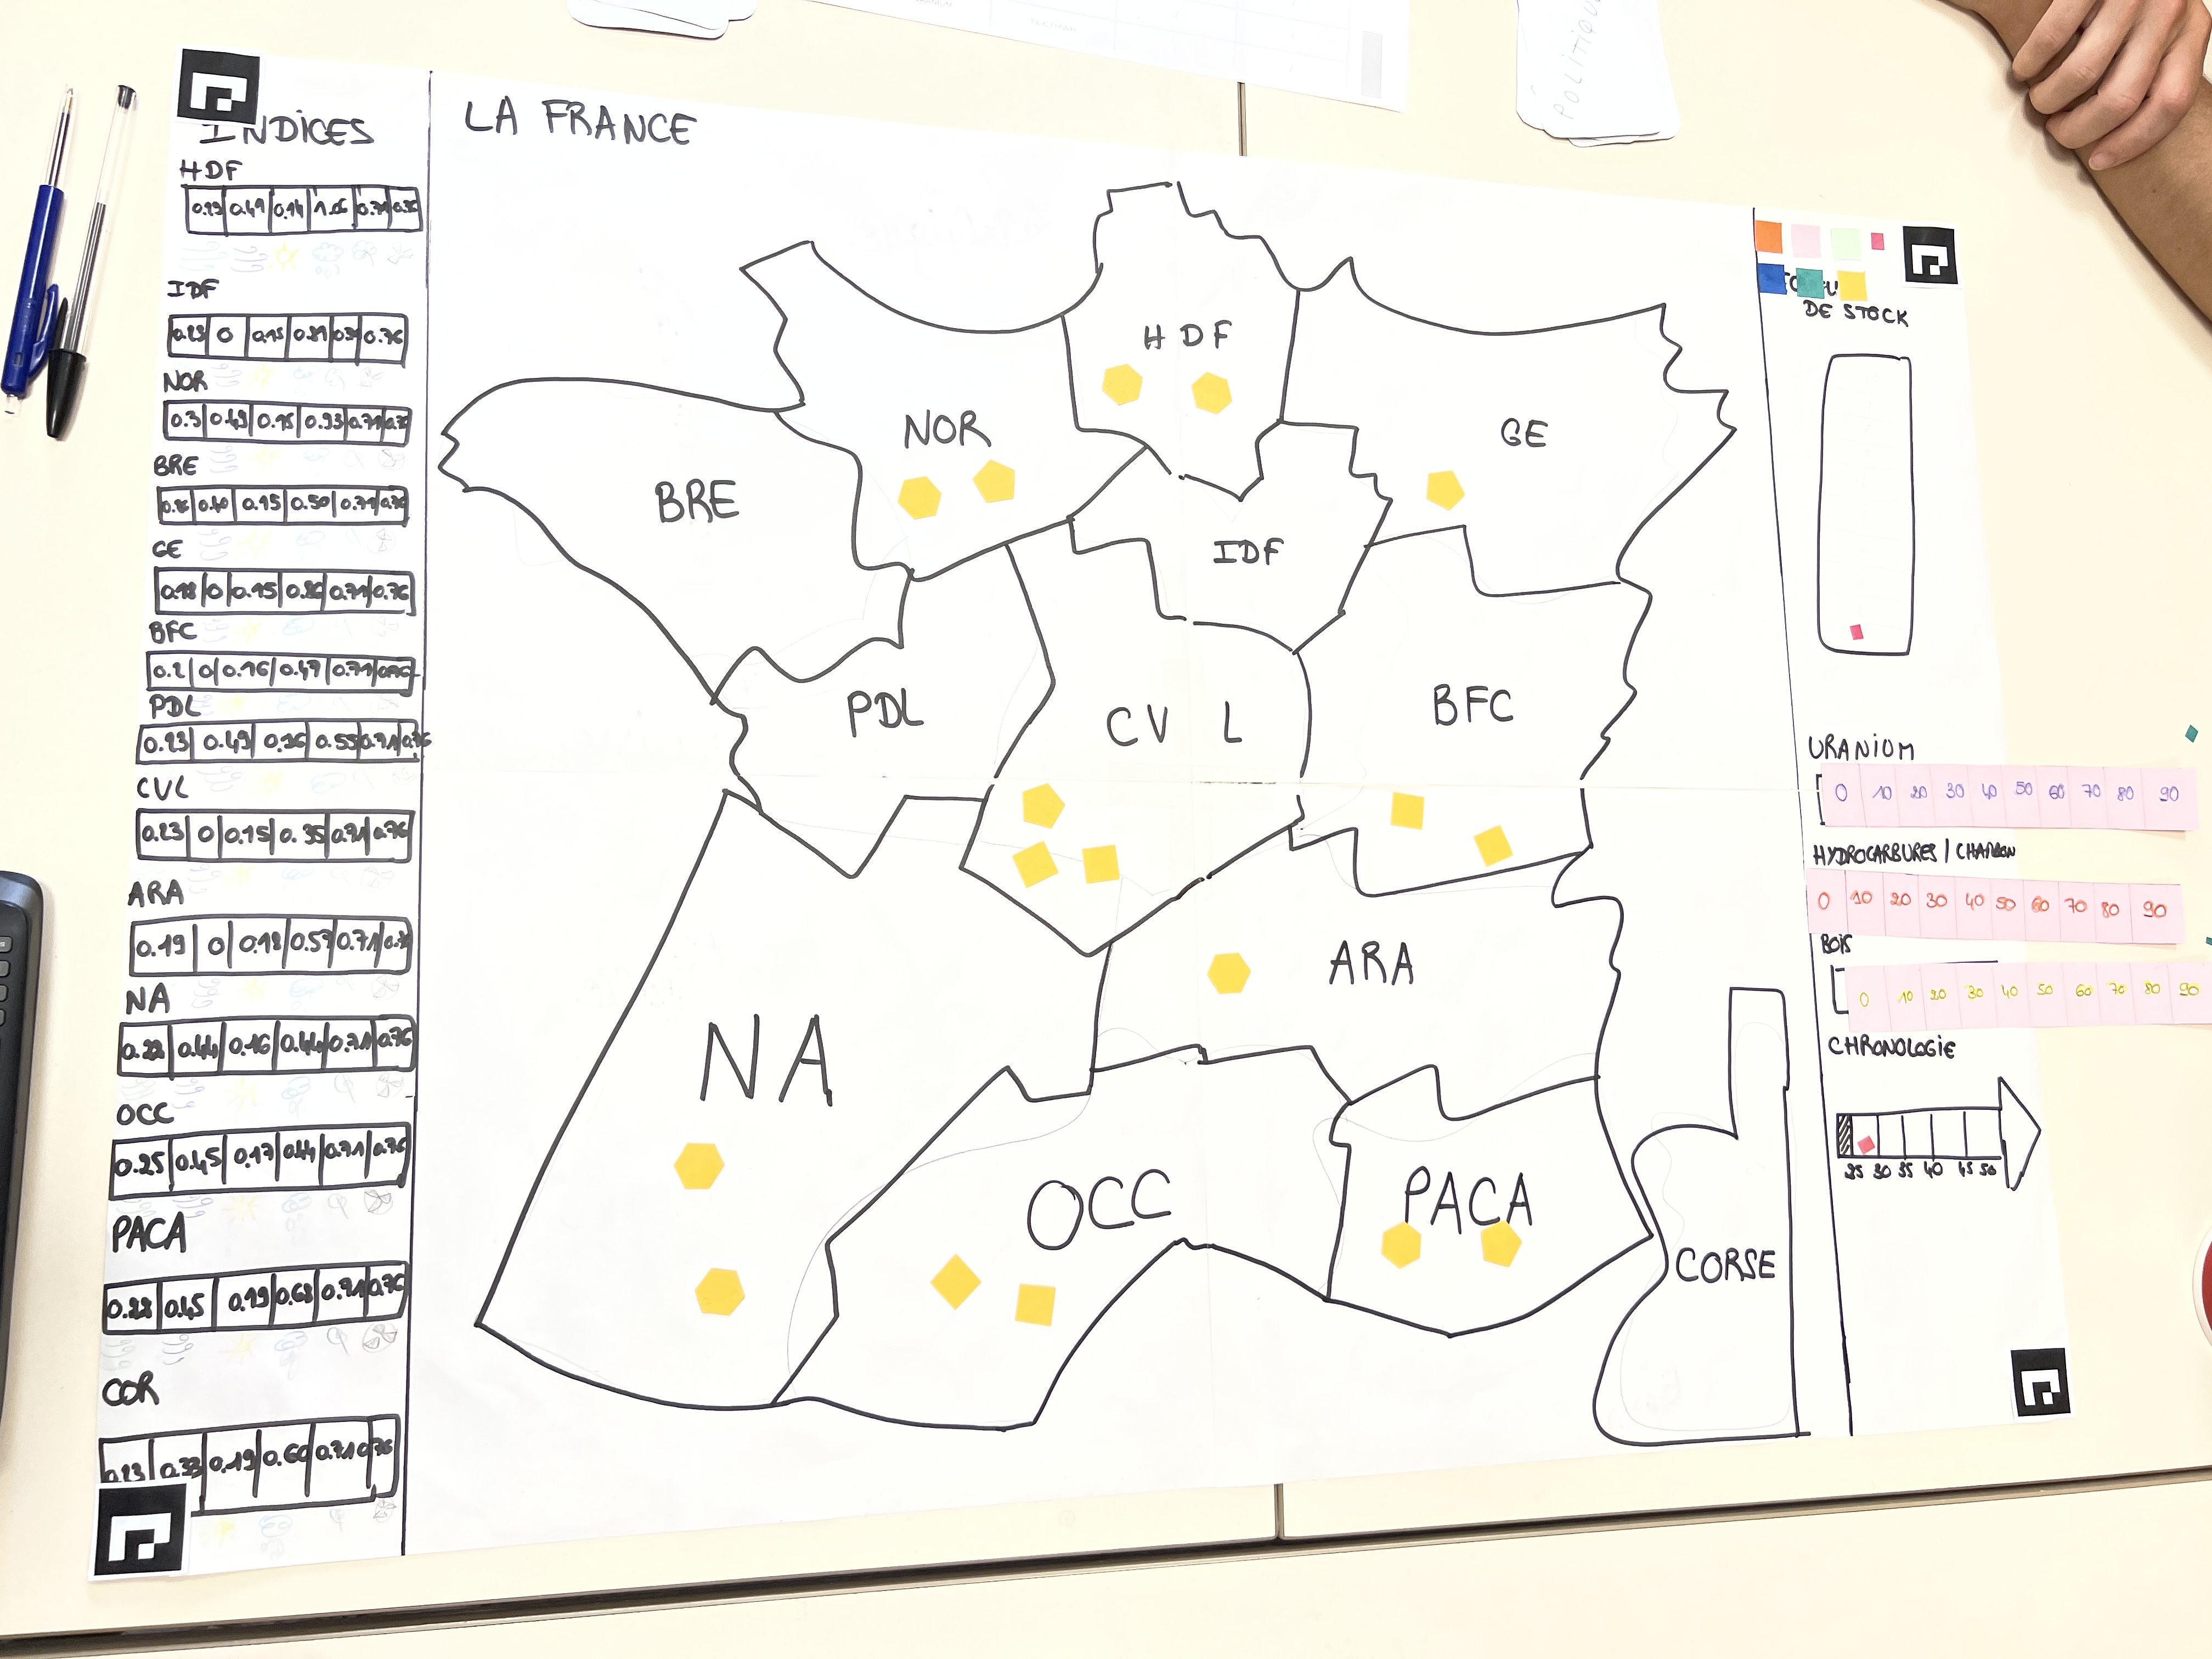 POLITIQU
INDICES
HDF
0.23 0.49 0.14 1.06 0.71
IDF
0.23 0 0.15 0.76
NOR
0.3 0.49 0.15 0.93 0.71
BRE
0.40 0.15 0.50 0.71 0.76
GE
0.18 0 0.15 0.86 0.71 0.76
BFC
0.2 0 0.16 0.47 0.71 0.76
PDL
0.23 0.49 0.16 0.55 0.71 0.76
CVL
0.23 0 0.15 0.35 0.71 0.76
ARA
0.19 0 0.18 0.57 0.71
NA
0.22 0.44 0.16 0.44 0.71 0.76
OCC
0.25 0.45 0.17 0.44 0.71 0.76
PACA
0.28 0.45 0.19 0.68 0.71 0.76
COR
0.23 0.33 0.19 0.60 0.71 0.76
LA FRANCE
HDF
NOR
GE
BRE
IDF
PDL
CVL
BFC
ARA
NA
OCC
PACA
CORSE
DE STOCK
URANIUM
0 10 20 30 40 50 60 70 80 90
HYDROCARBURES / CHARBON
0 10 20 30 40 50 60 70 80 90
BOIS
0 10 20 30 40 50 60 70 80 90
CHRONOLOGIE
25 30 35 40 45 50